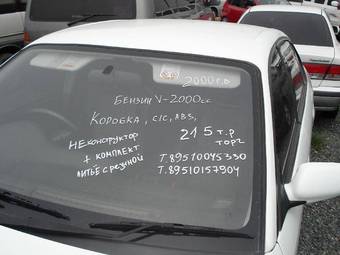 2000 г.в
БЕНЗИН V-2000сс
КОРОБКА, С/С, ABS,
НЕконструктор
+ КОМПЛЕКТ
ЛИТЬЁ С РЕЗИНОЙ
215 т.р
торг
Т.89510045330
Т.89510157904